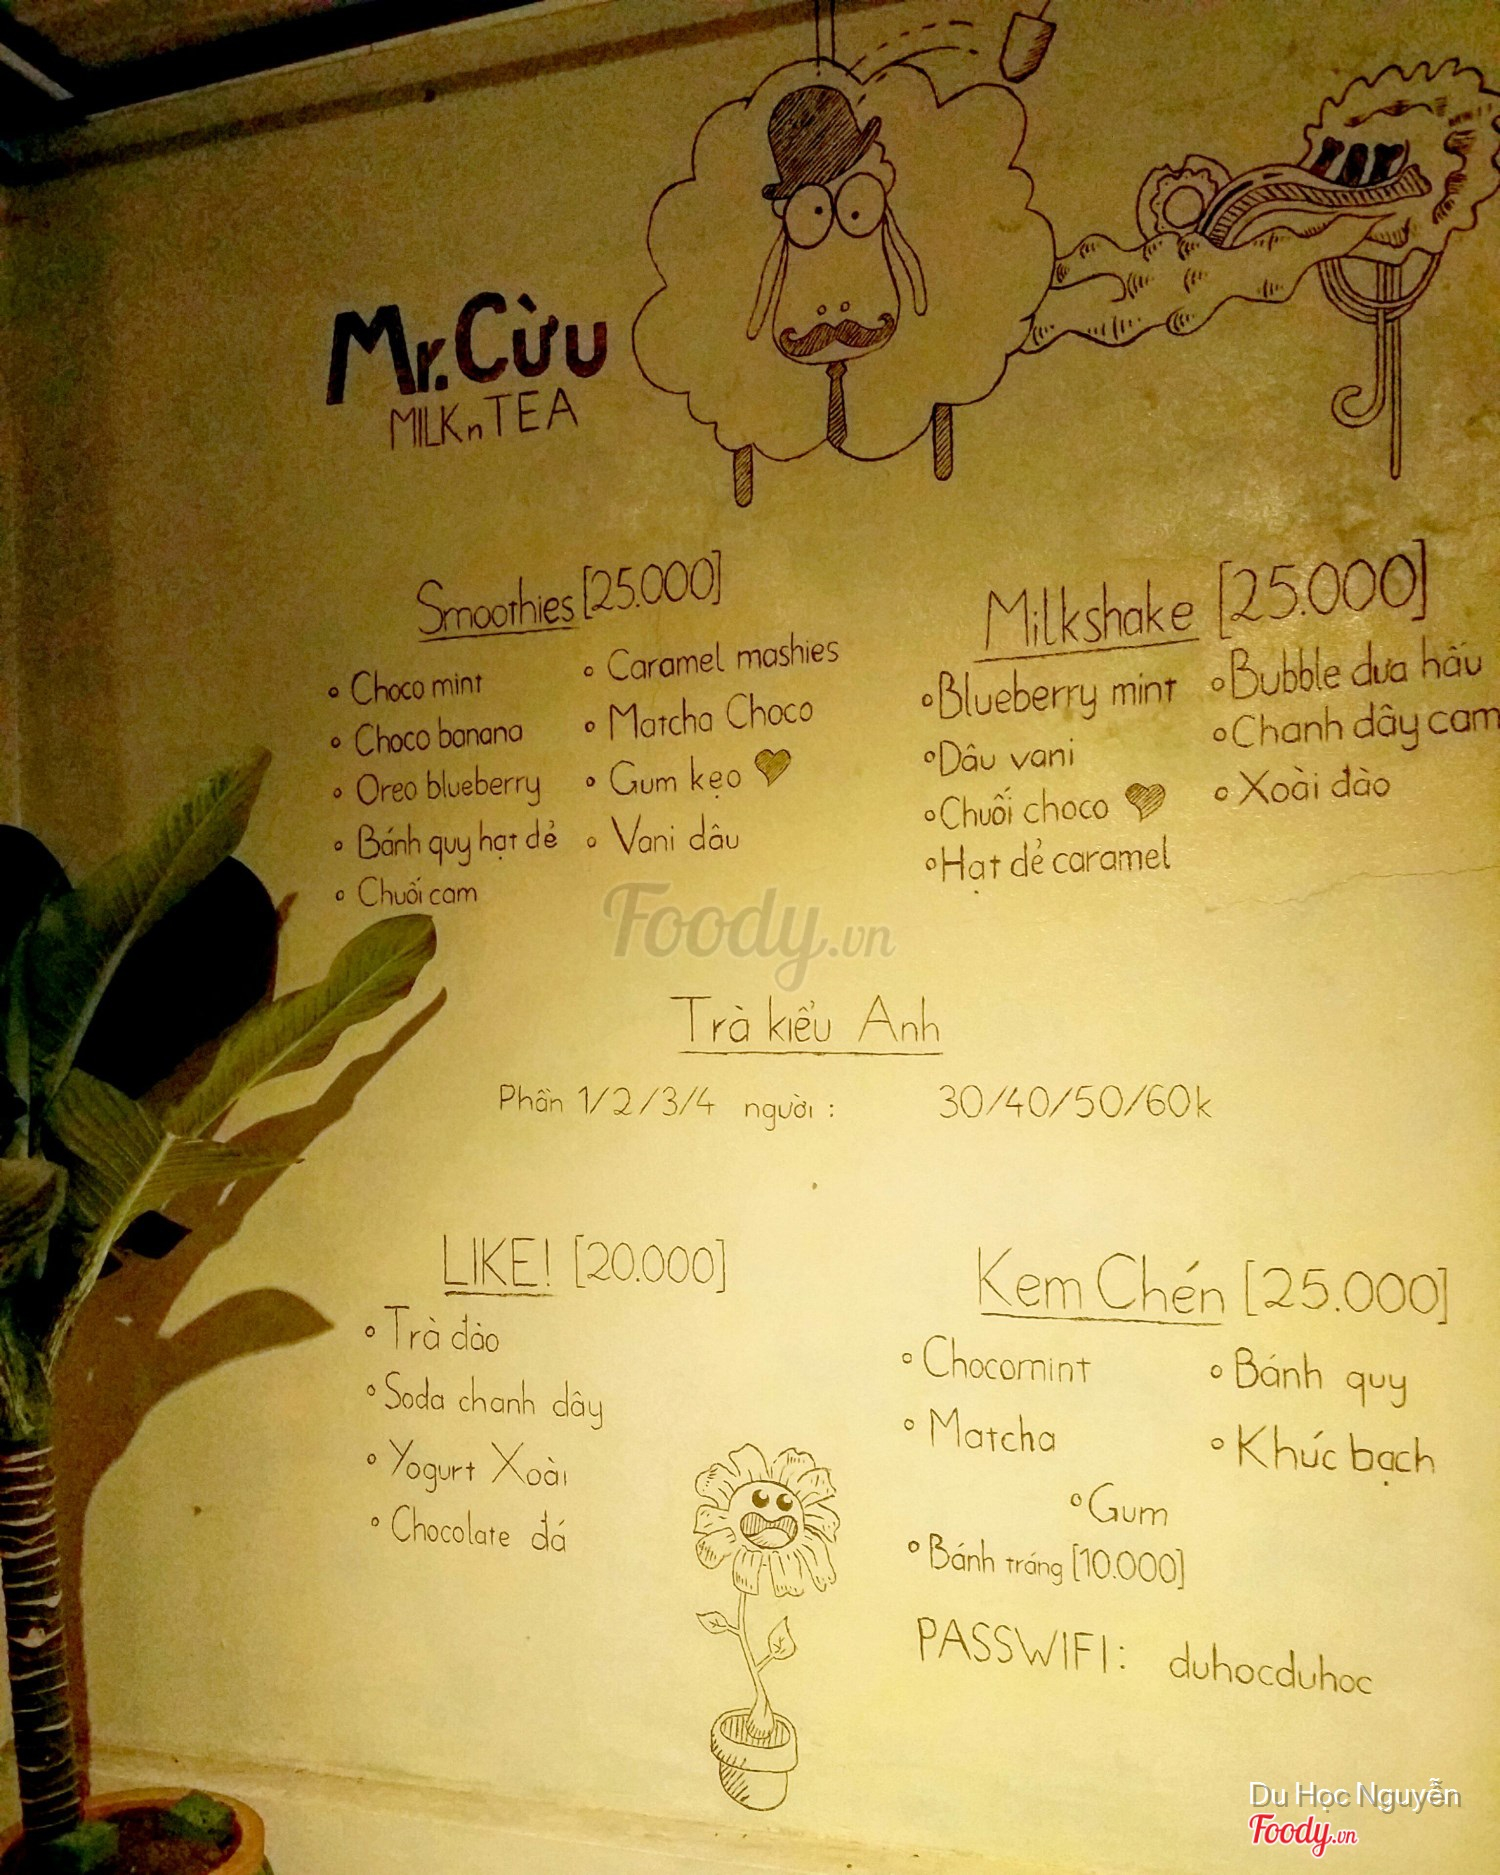 Mr. Cừu
MILK n TEA
Smoothies [25.000]
Choco mint
Choco banana
Oreo blueberry
Bánh quy hạt dẻ
Chuối cam
Caramel mashies
Matcha Choco
Gum kẹo
Vani dâu
Milkshake [25.000]
Blueberry mint
Dâu vani
Chuối choco
Hạt dẻ caramel
Bubble dưa hấu
Chanh dây cam
Xoài đào
Foody.vn
Trà kiểu Anh
Phần 1/2/3/4 người : 30/40/50/60k
LIKE! [20.000]
Trà đào
Soda chanh dây
Yogurt Xoài
Chocolate đá
Kem Chén [25.000]
Chocomint
Bánh quy
Matcha
Khúc bạch
Gum
Bánh tráng [10.000]
PASSWIFI: duhocduhoc
Du Học Nguyễn
Foody.vn